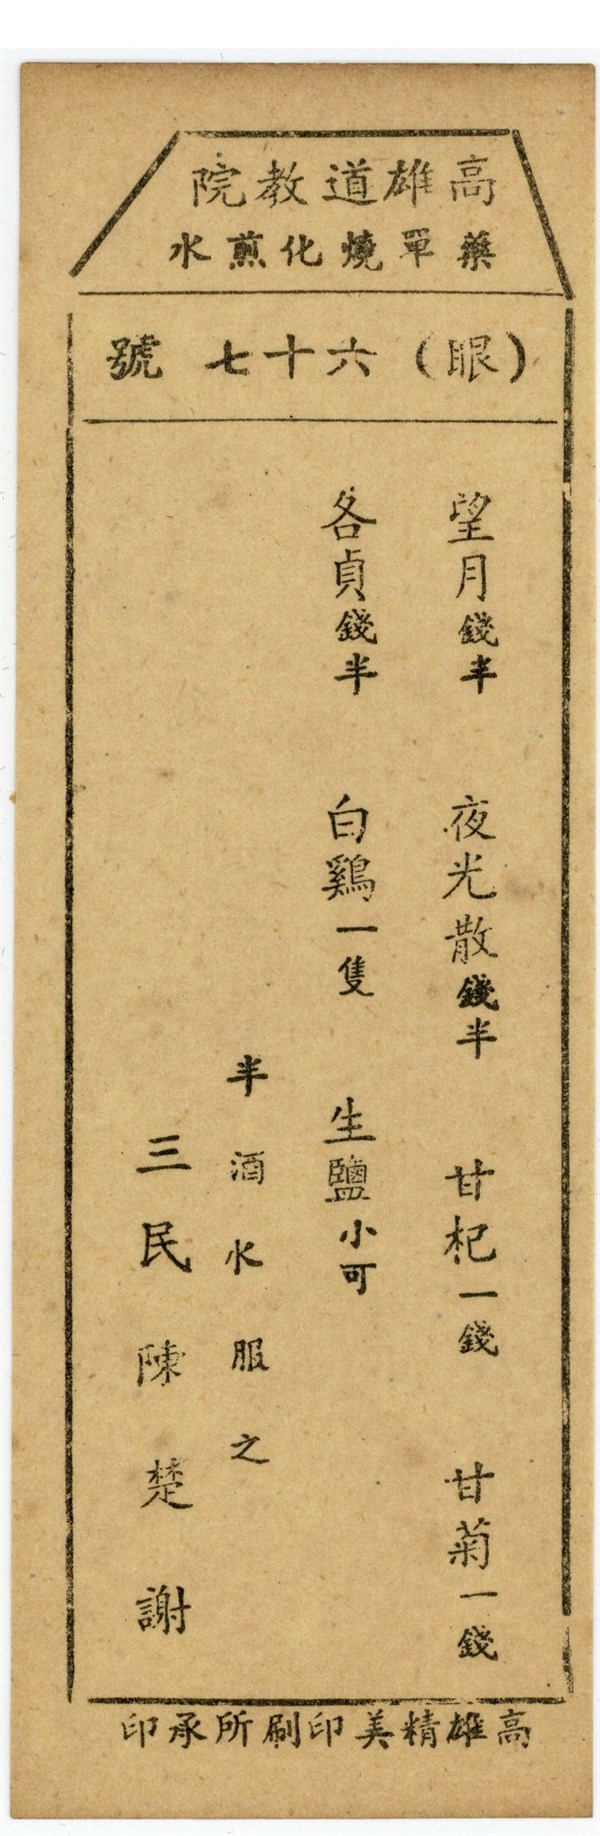 高雄道教院
藥單燒化煎水
(眼)六十七號
望月錢半　夜光散錢半　甘杞一錢　甘菊一錢
各貞錢半　白鷄一隻　生鹽小可
半酒水服之
三民陳楚謝
高雄精美印刷所承印